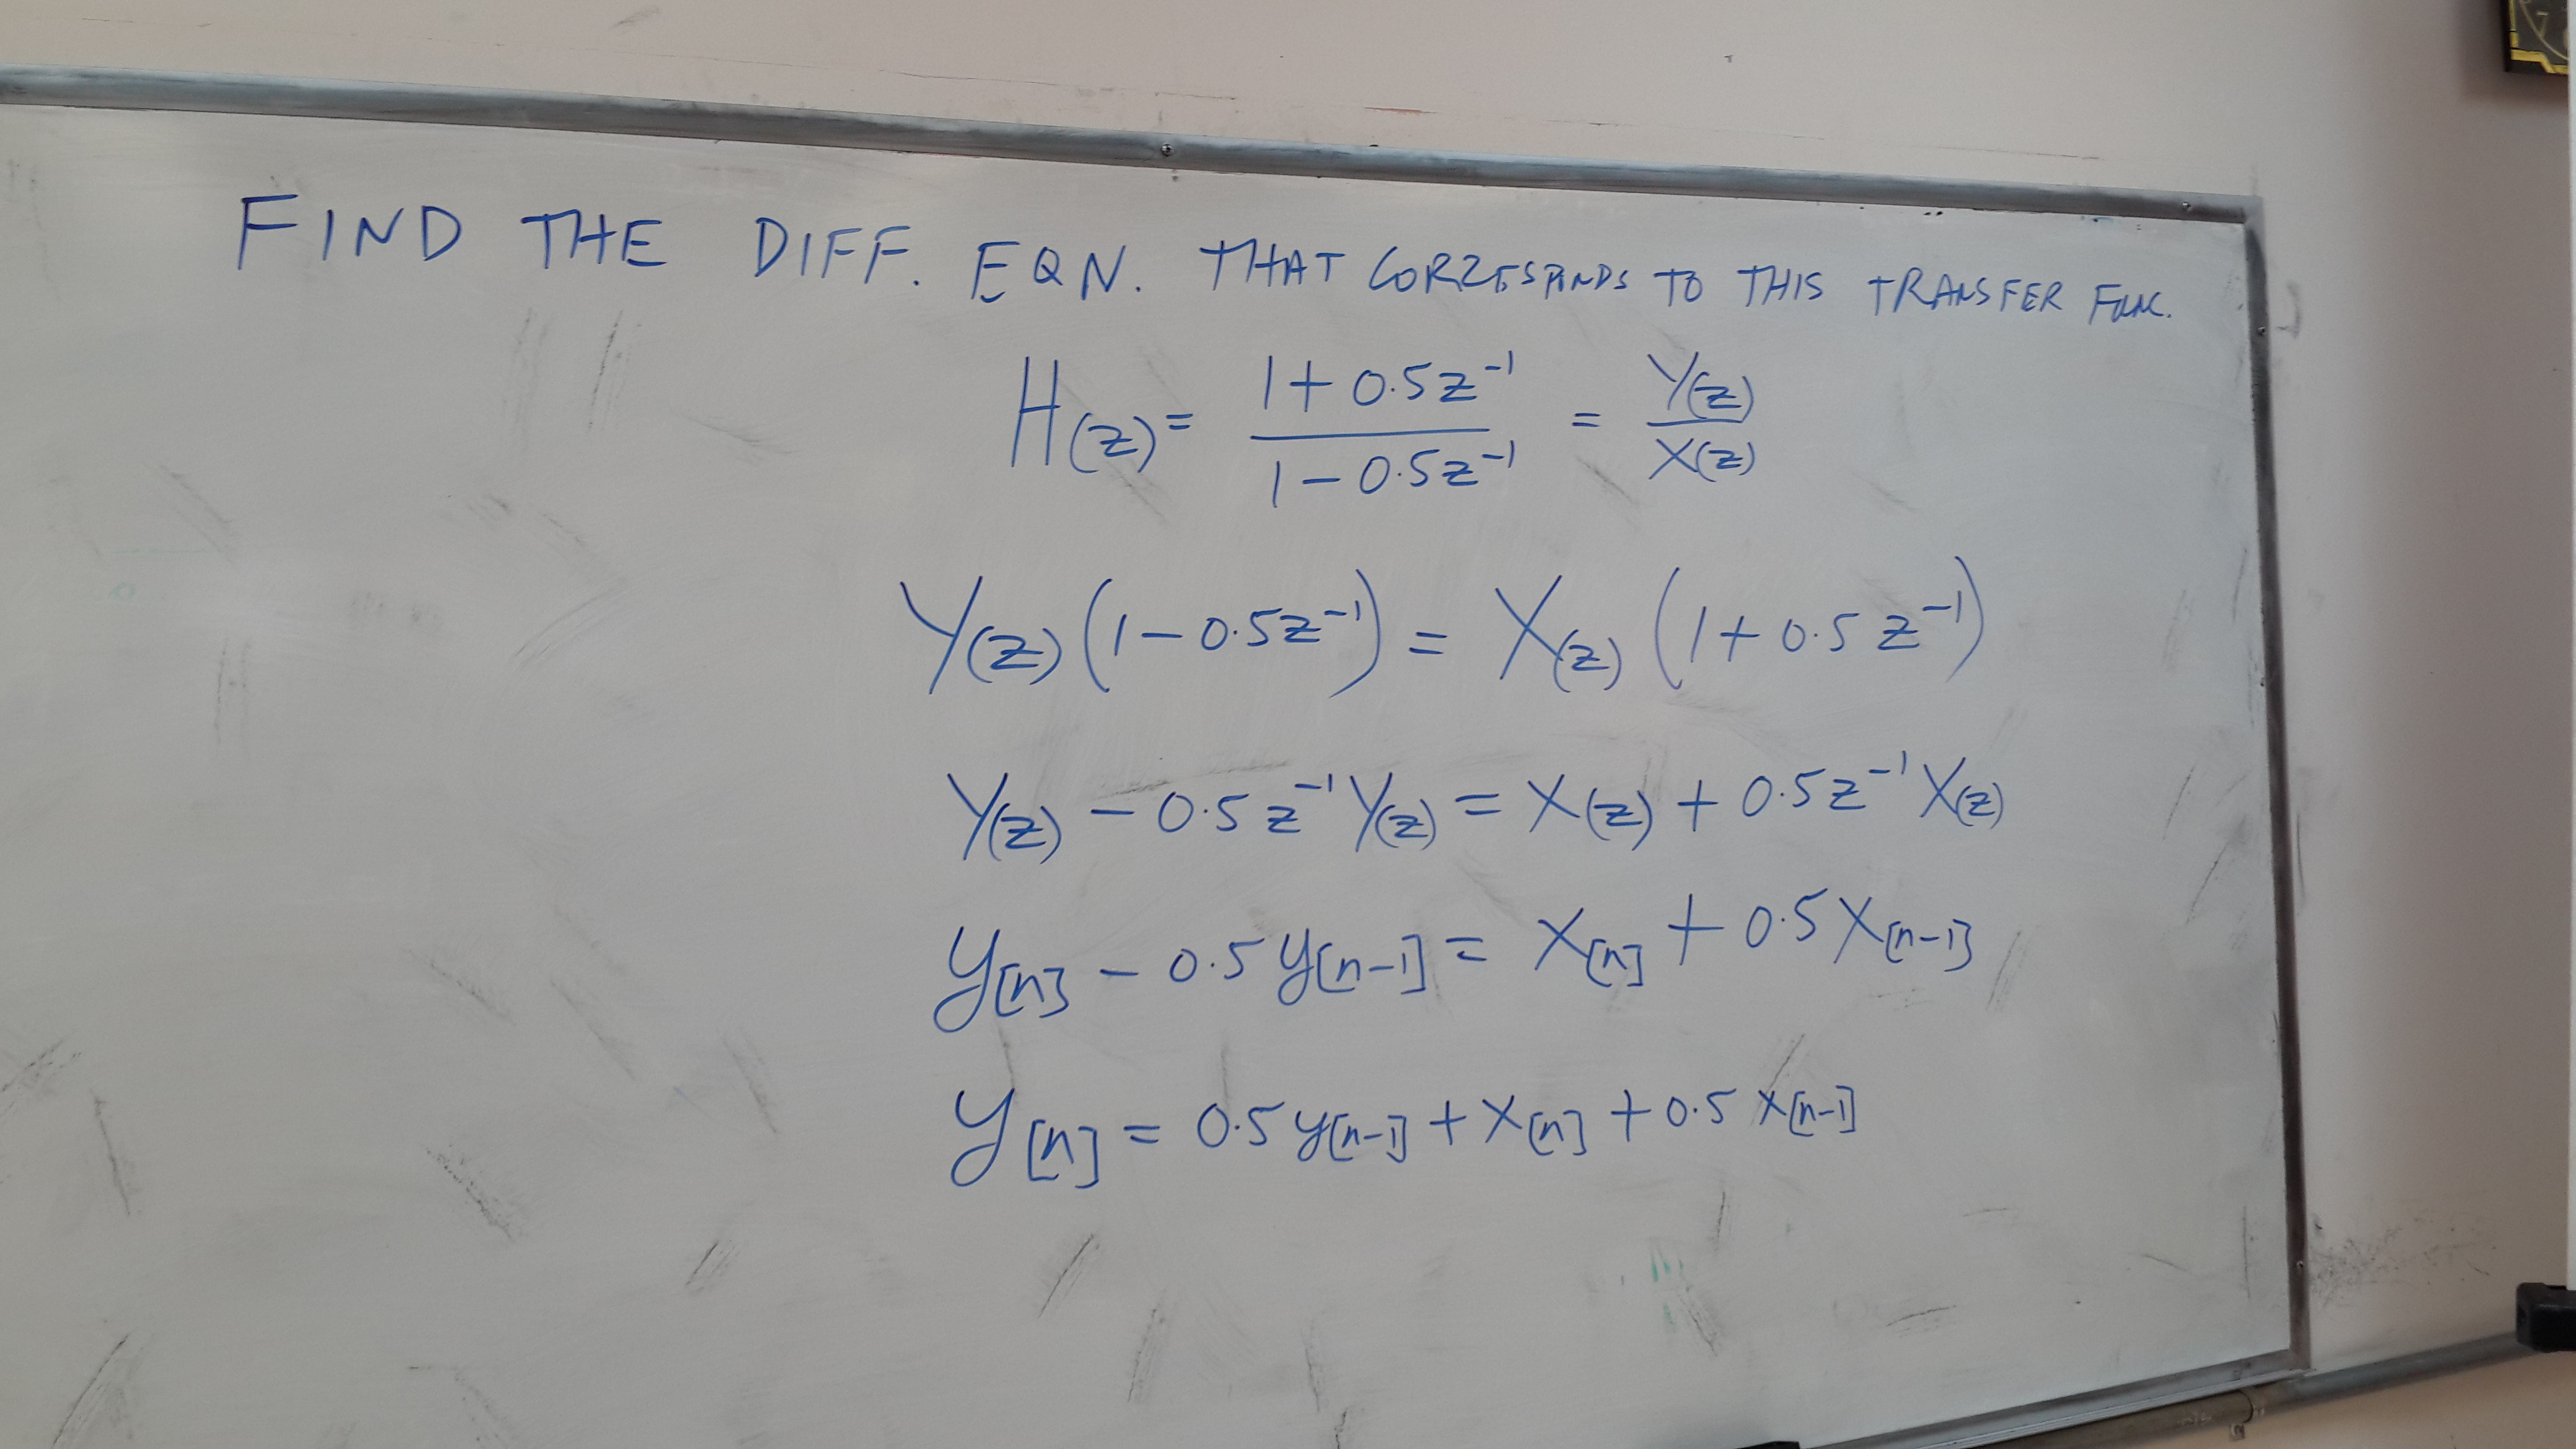 FIND THE DIFF. EQN. THAT CORRESPONDS TO THIS TRANSFER FUNC.
H(z) = 1 + 0.5z⁻¹ / 1 - 0.5z⁻¹ = Y(z) / X(z)
Y(z) (1 - 0.5z⁻¹) = X(z) (1 + 0.5z⁻¹)
Y(z) - 0.5z⁻¹ Y(z) = X(z) + 0.5z⁻¹ X(z)
y[n] - 0.5 y[n-1] = x[n] + 0.5 x[n-1]
y[n] = 0.5 y[n-1] + x[n] + 0.5 x[n-1]